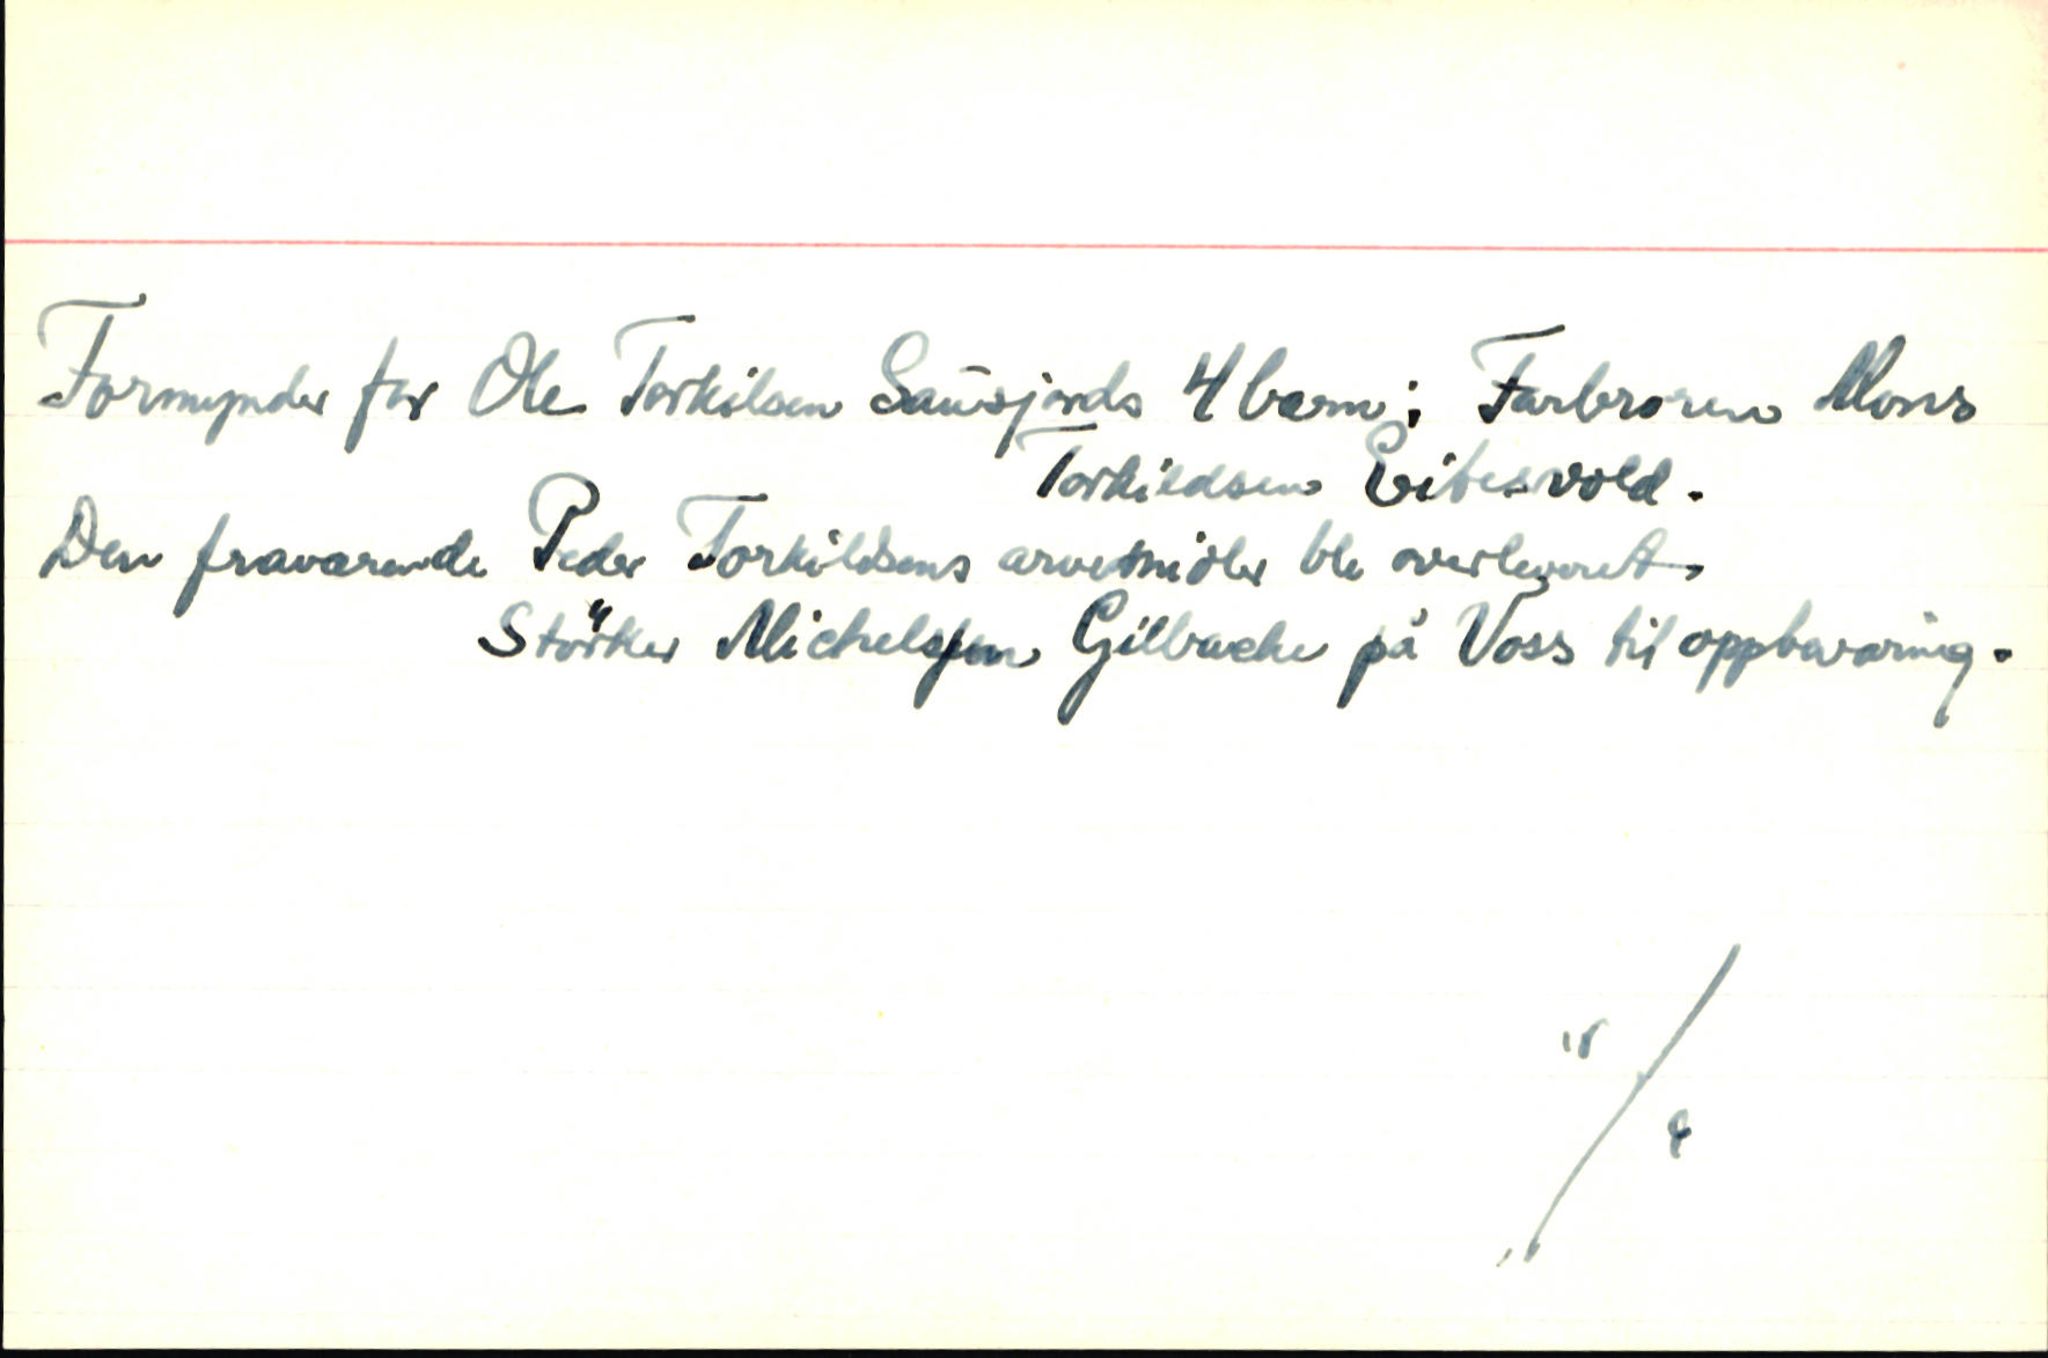 Formynder for Ole Torkilsen Sausjords 4 barn; Farbroren Mons
Torkildsen Eitesvold.
Den fraværende Peder Torkildsens arvemidler ble overleveret
Störker Michelsen Gilbacke på Voss til oppbevaring.